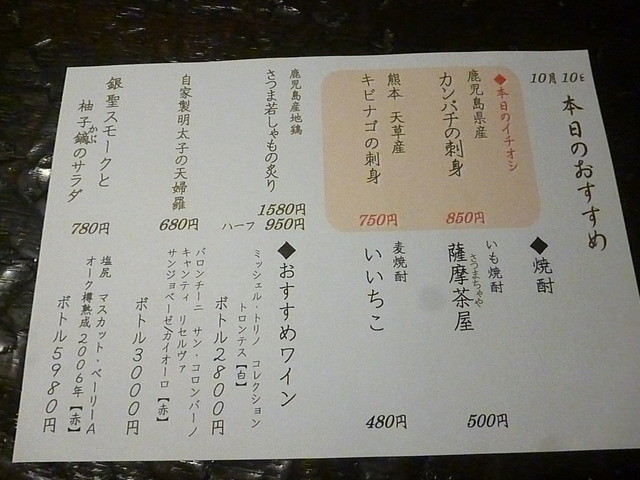 10月10日
本日のおすすめ
◆本日のイチオシ
鹿児島県産
カンパチの刺身
850円
熊本 天草産
キビナゴの刺身
750円
鹿児島産地鶏
さつま若しゃもの炙り
1580円
ハーフ 950円
自家製明太子の天婦羅
680円
銀聖スモークと
柚子鏑のサラダ
かぶ
780円
◆焼酎
いも焼酎
薩摩茶屋
さつまちゃや
500円
麦焼酎
いいちこ
480円
◆おすすめワイン
ミッシェル・トリノ コレクション
トロンテス【白】
ボトル2800円
バロンチーニ サン・コロンバーノ
キャンティ リセルヴァ
サンジョベーゼ/カイオーロ【赤】
ボトル3000円
塩尻 マスカット・ベーリーA
オーク樽熟成2006年【赤】
ボトル5980円